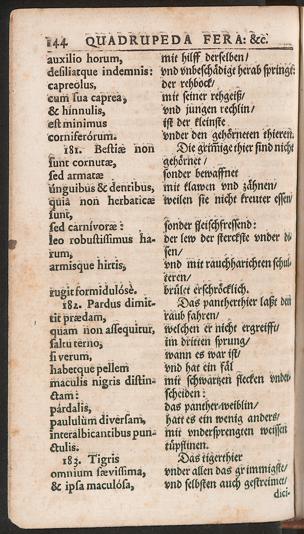 144 QUADRUPEDA FERA: &c.
auxilio horum, mit hilff derselben/
desiliatque indemnis: vnd vnbeschädigt herab springt:
capreolus, der rehbock/
cum sua caprea, mit seiner rehgeiß/
& hinnulis, vnd jungen rechlin/
est minimus ist der kleinste
corniferórum. vnder den gehörneten thieren.
181. Bestiæ non Die grim̃ige thier sind nicht
sunt cornutæ, gehörnet/
sed armatæ sonder bewaffnet
unguibus & dentibus, mit klawen vnd zähnen/
quia non herbaticæ weilen sie nicht kreuter essen/
sunt,
sed carnívoræ: sonder fleischfressend:
leo robustissimus ha- der lew der sterckste vnder di-
rum, sen/
armisque hirtis, vnd mit rauchharichten schul-
teren/
rugit formidulósè. brület erschröcklich.
182. Pardus dimit- Das pantherthier laßt den
tit prædam, raub fahren/
quam non assequitur, welchen er nicht ergreifft/
saltu terno, im dritten sprung/
si verum, wann es war ist/
habetque pellem vnd hat ein fäl
maculis nigris distin- mit schwartzen flecken vnder-
ctam: scheiden:
párdalis, das panther-weiblin/
paululùm diversam, hatt es ein wenig anders/
interalbicantibus pun- mit vndersprengten weissen
ctulis. tüpflinen.
183. Tigris Das tigerthier
omnium sævissima, vnder allen das grimmigste/
& ipsa maculósa, vnd selbsten auch gestreimet/
dici-